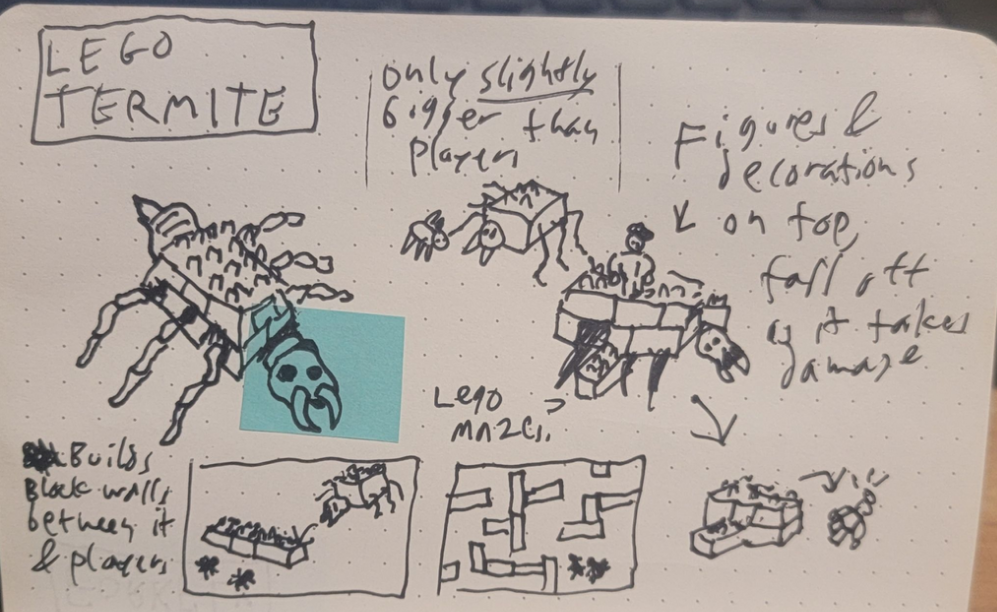 LEGO
TERMITE
only slightly
bigger than
players
Figures &
decorations
on top,
fall off
as it takes
damage
Lego
Builds
Block walls
between it
& players